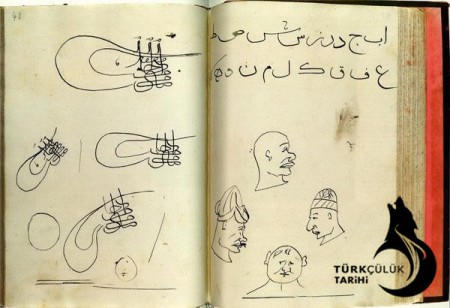 ا ب ج د ر ز س ش ص ط
ع ف ق ك ل م ن
TÜRKÇÜLÜK
TARİHİ